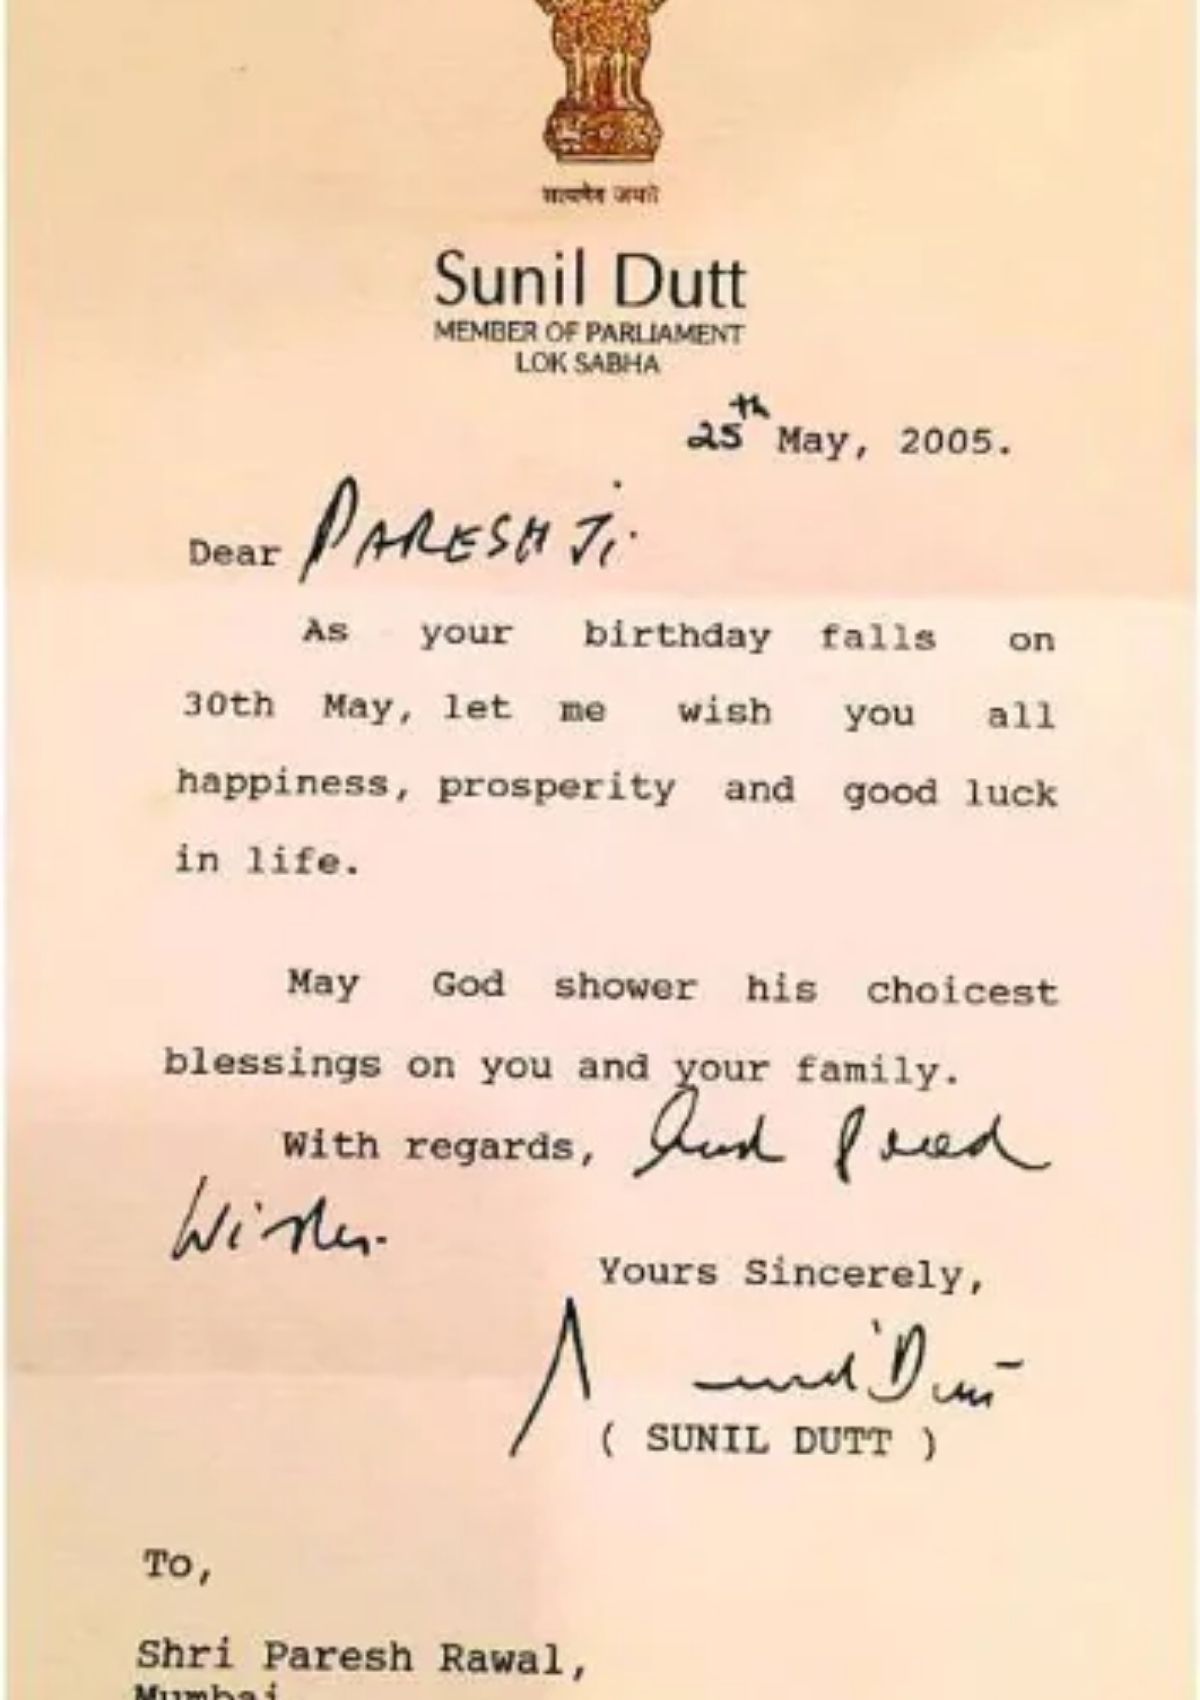 सत्यमेव जयते
Sunil Dutt
MEMBER OF PARLIAMENT
LOK SABHA
25th May, 2005.
Dear PARESH Ji.
As your birthday falls on
30th May, let me wish you all
happiness, prosperity and good luck
in life.
May God shower his choicest
blessings on you and your family.
With regards, And Good
Wishes.
Yours Sincerely,
Sunil Dutt
( SUNIL DUTT )
To,
Shri Paresh Rawal,
Mumbai